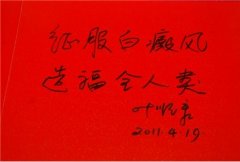 征服白癜风
造福全人类
2011.4.19